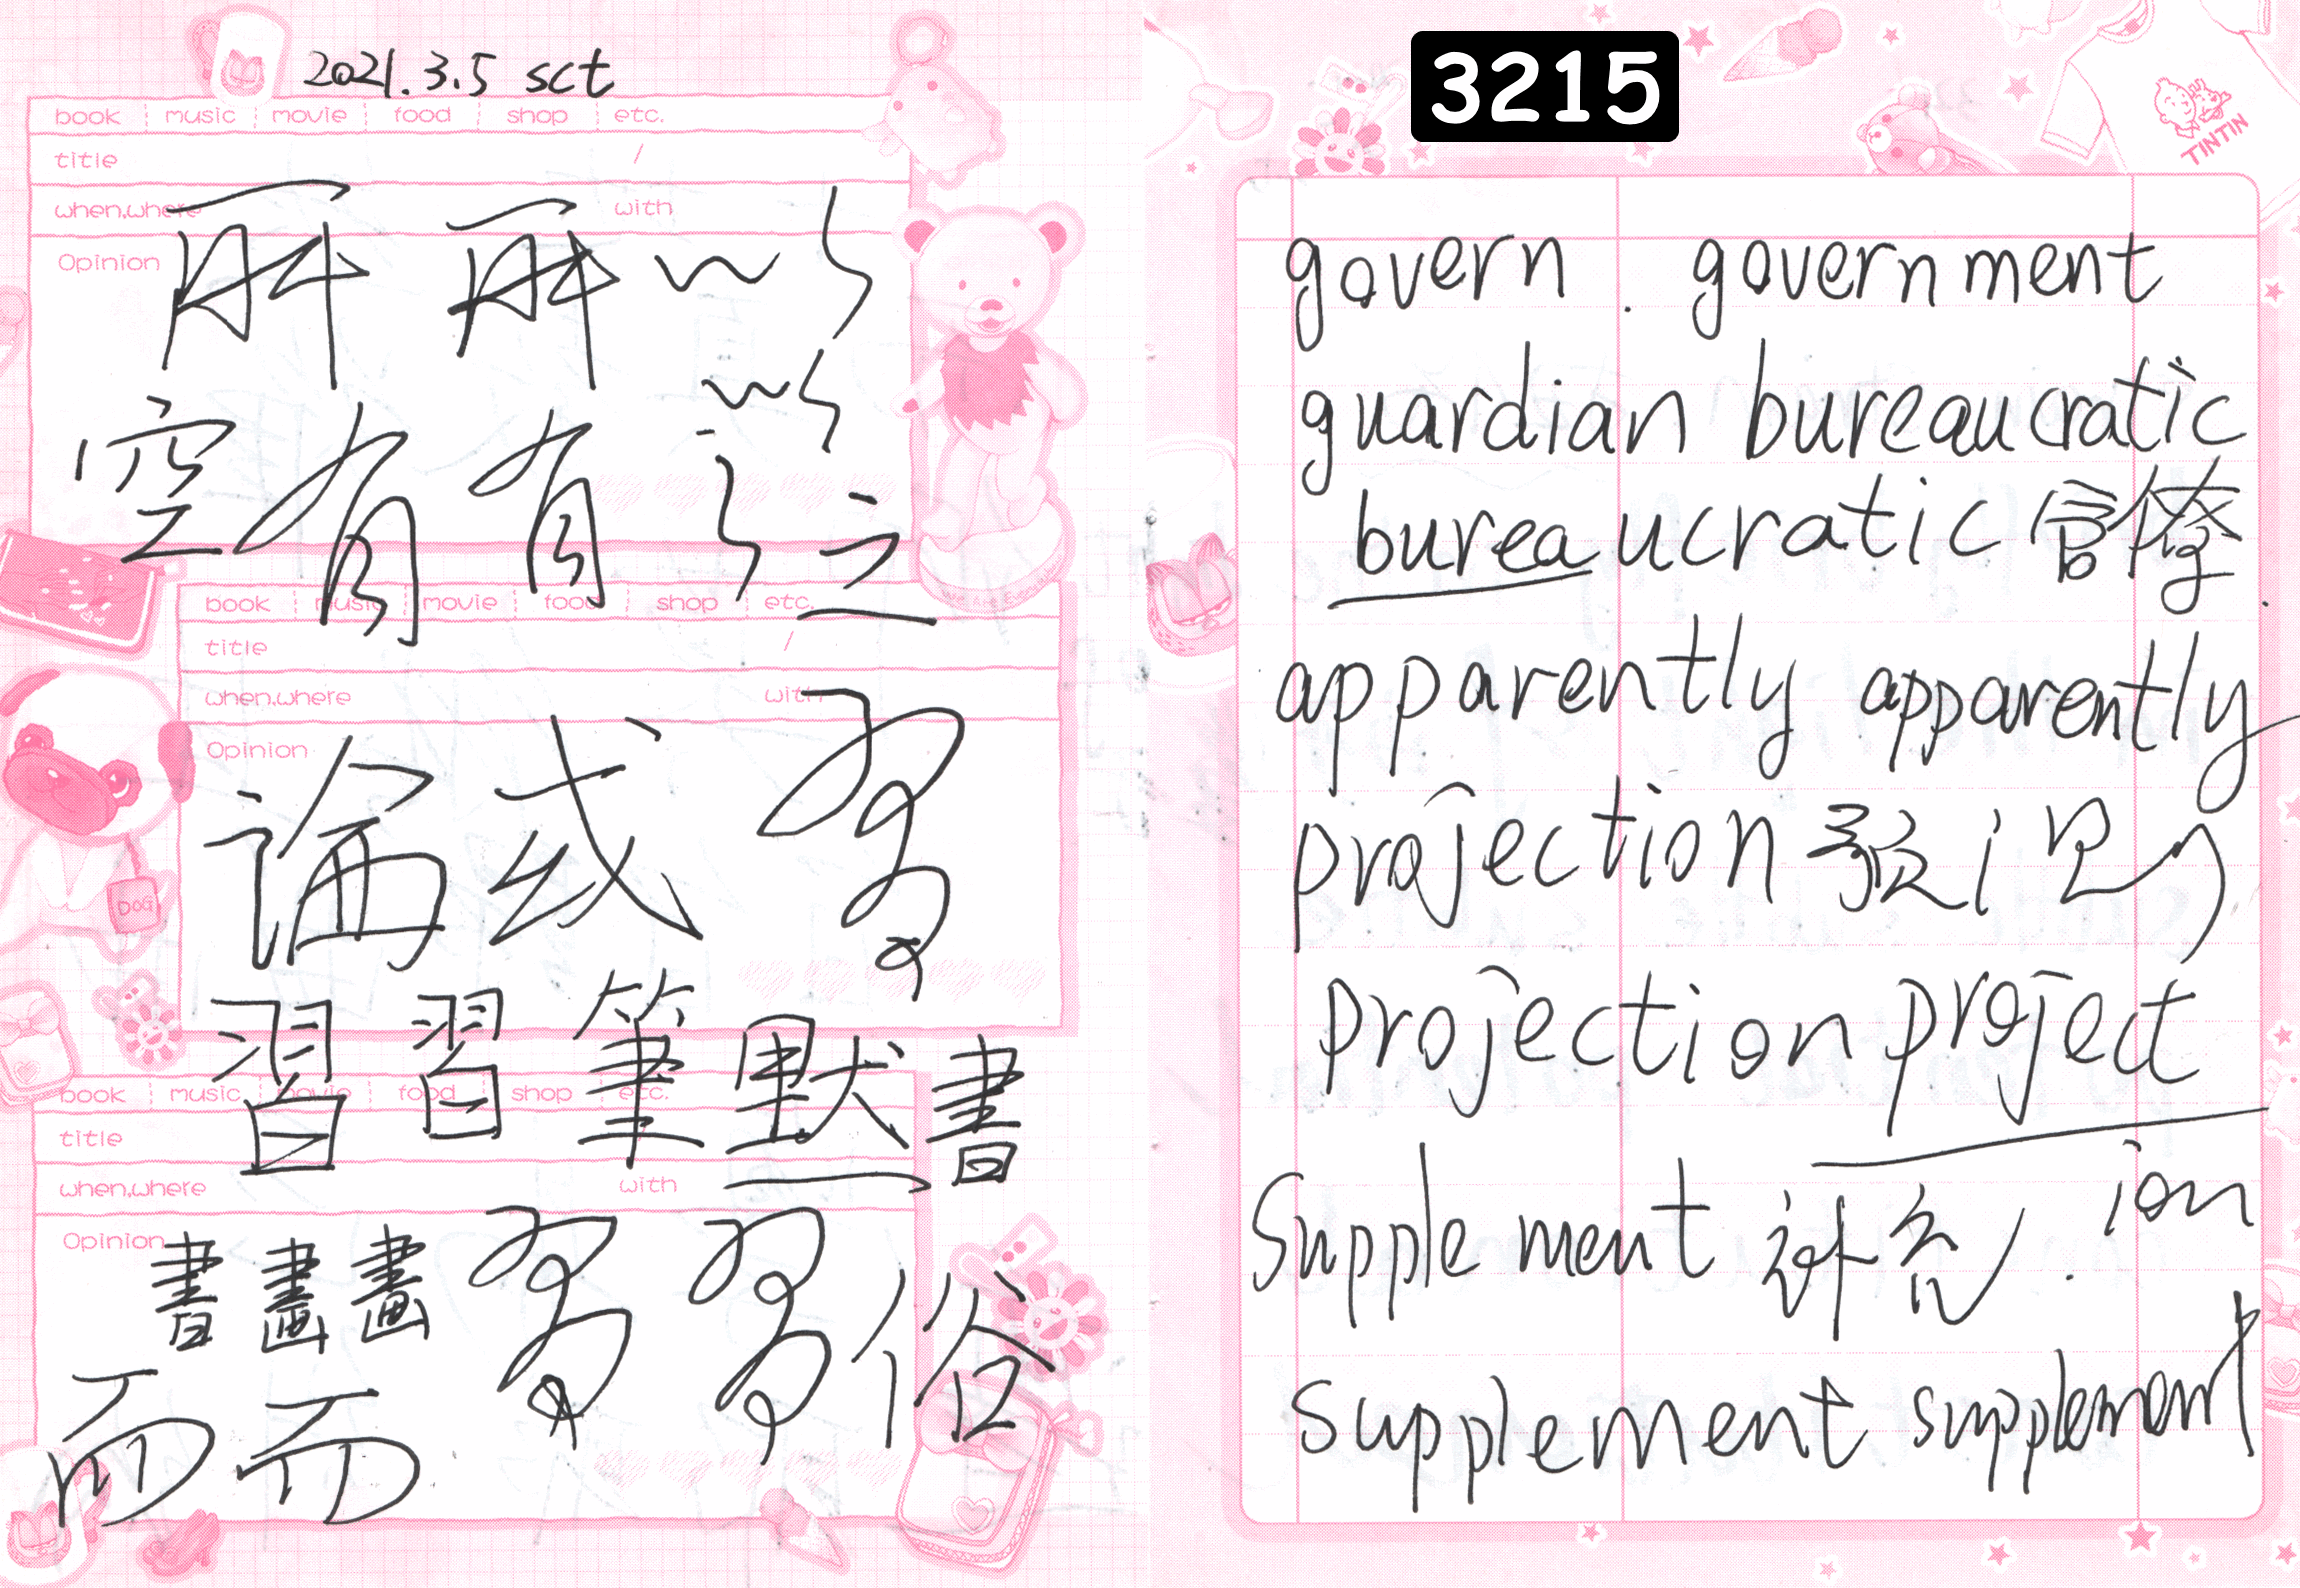 2021.3.5 sct
book music movie food shop etc.
title /
when,where with
Opinion 所 所 以
以
空 有 有 之 之
book music movie food shop etc.
title /
when,where with
Opinion
論 或 習
習 習 筆 默 書
book music movie food shop etc.
title
when,where with
Opinion
書 畫 畫 習 習 俗
而 而
DOG
3215
TINTIN
govern . government
guardian bureaucratic
bureaucratic 官僚.
apparently apparently
projection
projection project
ion
Supplement 补充.
supplement supplement